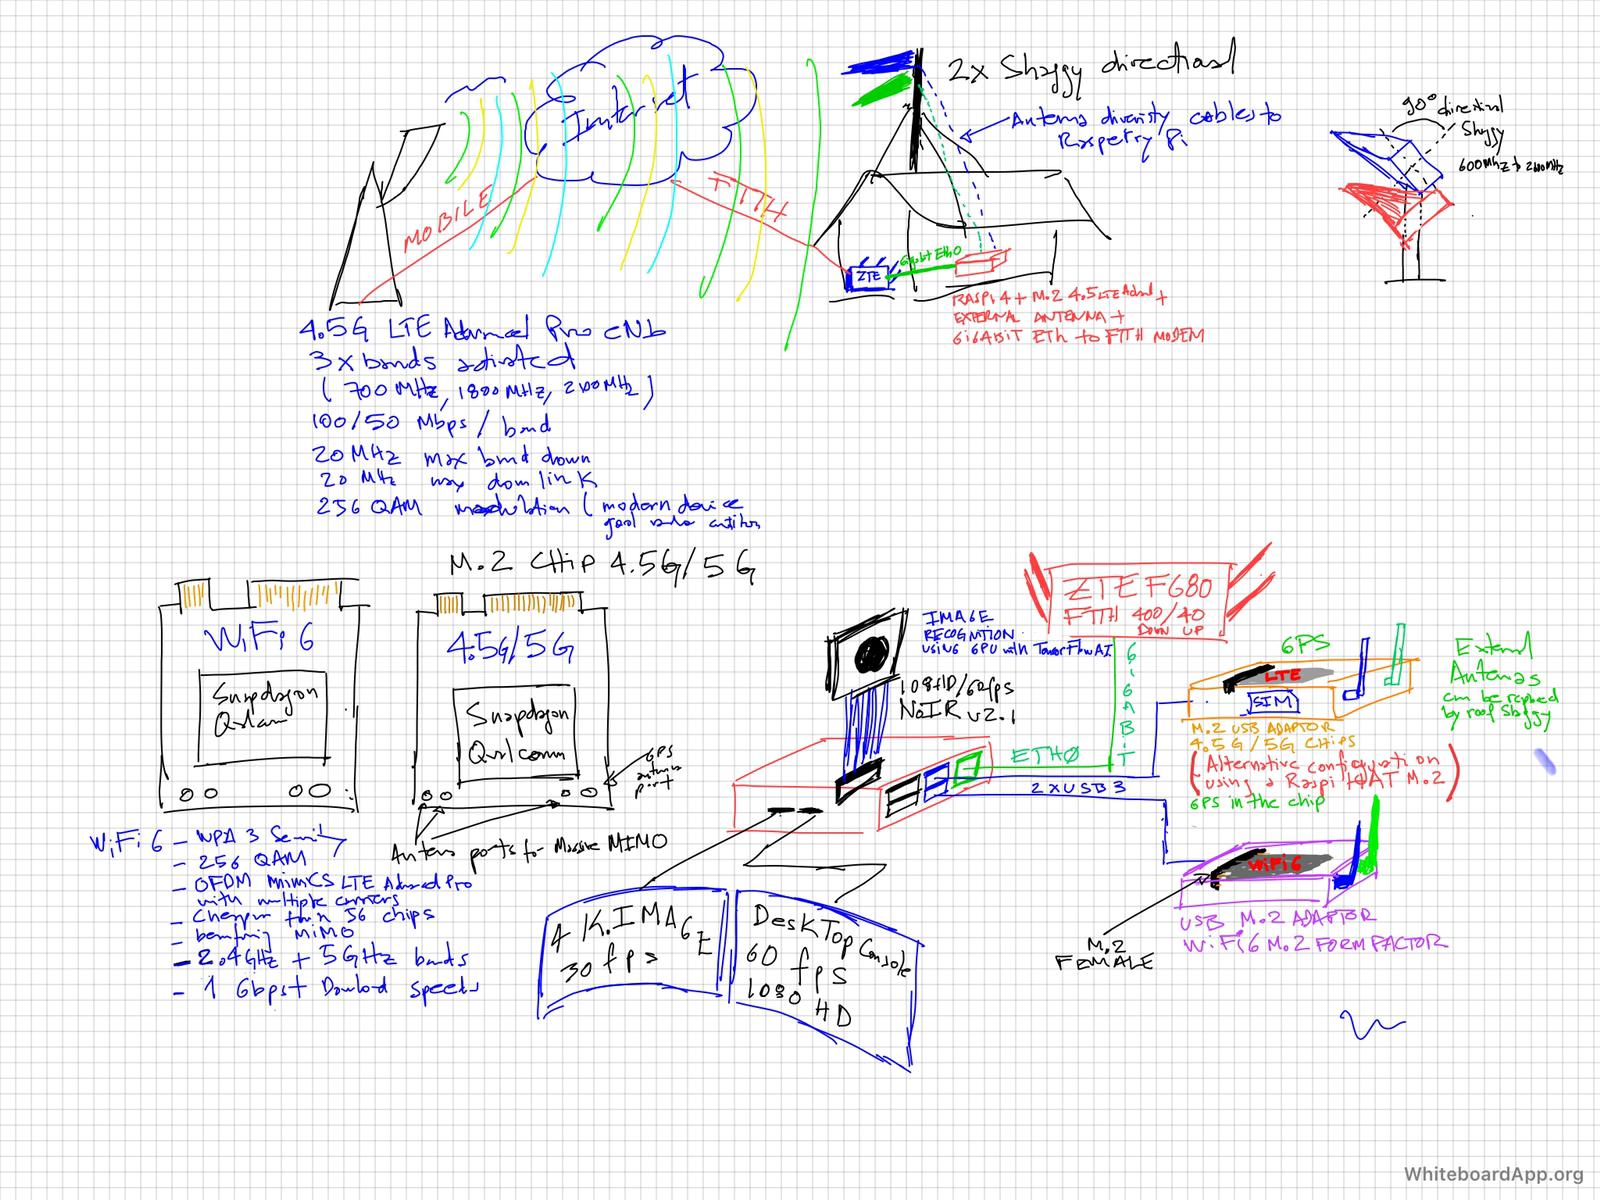 Internet
MOBILE
FTTH
2x Shaggy directional
Antenna diversity cables to
Raspetry Pi
90° directional
Shaggy
600Mhz > 2600MHz
ZTE
Gigabit Eth0
RASPi 4 + M.2 4.5 LTE Advnd +
EXTERNAL ANTENNA +
GiGABiT ETh to FTTH MODEM
4.5G LTE Advanced Pro eNb
3 x bands activated
(700 MHz, 1800 MHz, 2100 MHz)
100/50 Mbps / band
20 MHz max band down
20 MHz max downlink
256 QAM modulation (modern device
good radio
M.2 CHiP 4.5G/5G
WiFi 6
Snapdragon
4.5G/5G
Snapdragon
Qualcomm
GPS
antenna
port
Antena ports for Massive MIMO
WiFi 6 - WPA 3 Security
- 256 QAM
- OFDM MimiCS LTE Advanced Pro
with multiple carriers
- Cheaper than 5G chips
- MiMO
- 2.4GHz + 5GHz bands
- 1 Gbps+ Download speeds
IMAGE
RECOGNITION
USING GPU with TensorFlow AI
1080HD/60fps
NoIR v2.1
4K.IMAGE
30 fps
DeskTop Console
60 fps
1080 HD
ZTE F680
FTTH 400/40
DOWN UP
GiGABiT
ETH0
2XUSB3
GPS
LTE
SIM
External
Antenas
can be replaced
by roof Shaggy
M.2 USB ADAPTOR
4.5G/5G CHiPS
(Alternative configuration
using a Raspi HAT M.2)
GPS in the chip
WiFi6
USB M.2 ADAPTOR
WiFi6 M.2 FORM FACTOR
M.2
FEMALE
WhiteboardApp.org